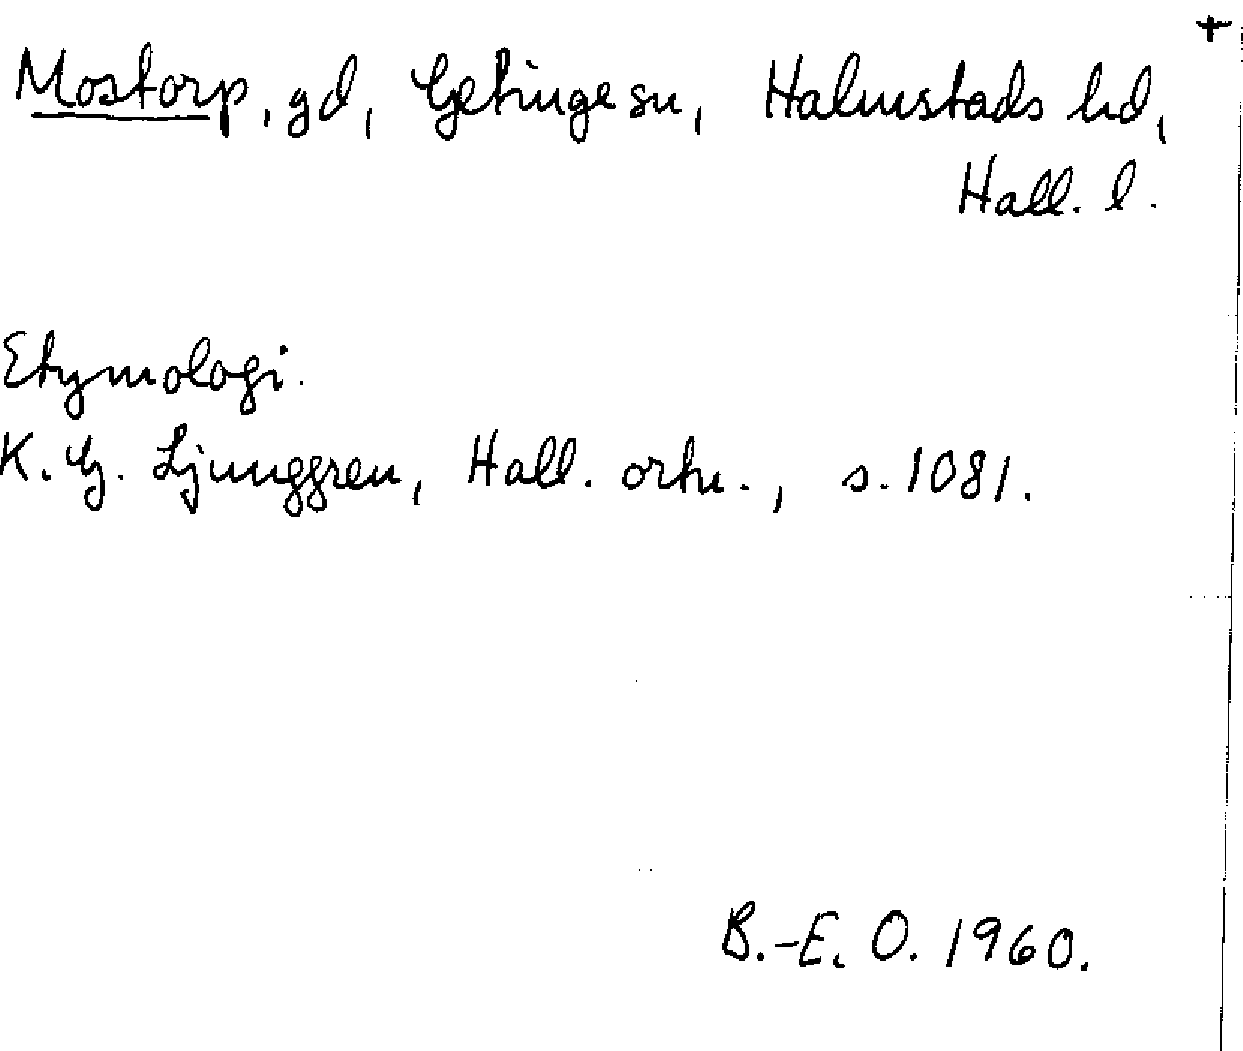 +
Mostorp, gd, Getinge sn, Halmstads hd,
Hall. l.
Etymologi.
K. G. Ljunggren, Hall. ortn., s. 1081.
B.-E. O. 1960.